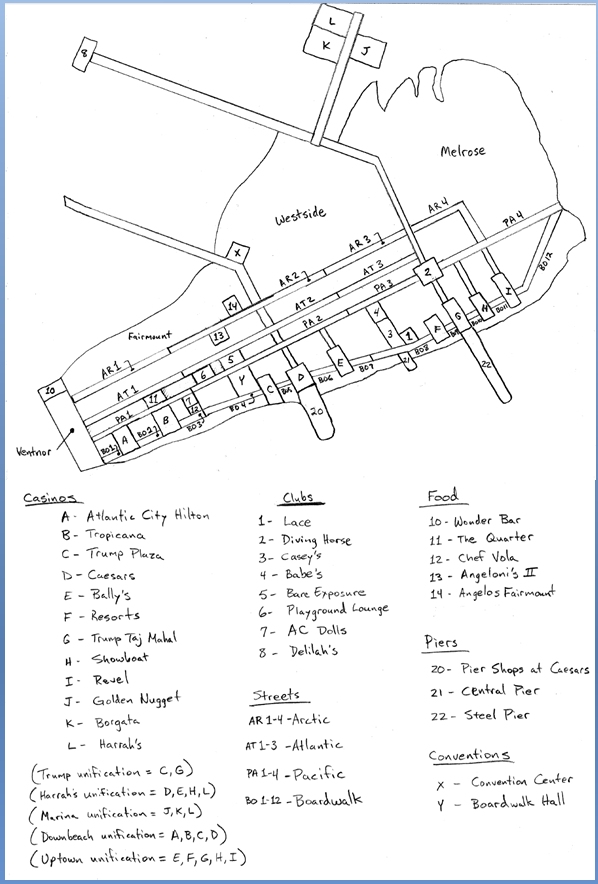 L
K
J
8
Melrose
Westside
AR4
PA4
X
AR3
AR2
AT3
BO12
2
14
AT2
PA3
I
13
Fairmount
PA2
4
H
BO11
G
3
1
F
BO8
10
AR1
5
6
E
BO7
21
22
AT1
Y
D
BO6
11
7
C
BO5
PA1
B
12
BO4
20
Ventnor
BO1
A
BO2
BO3
Casinos
A - Atlantic City Hilton
B - Tropicana
C - Trump Plaza
D - Caesars
E - Bally's
F - Resorts
G - Trump Taj Mahal
H - Showboat
I - Revel
J - Golden Nugget
K - Borgata
L - Harrah's
(Trump unification = C, G)
(Harrah's unification = D, E, H, L)
(Marina unification = J, K, L)
(Downbeach unification = A, B, C, D)
(Uptown unification = E, F, G, H, I)
Clubs
1 - Lace
2 - Diving Horse
3 - Casey's
4 - Babe's
5 - Bare Exposure
6 - Playground Lounge
7 - AC Dolls
8 - Delilah's
Streets
AR 1-4 - Arctic
AT 1-3 - Atlantic
PA 1-4 - Pacific
BO 1-12 - Boardwalk
Food
10 - Wonder Bar
11 - The Quarter
12 - Chef Vola
13 - Angeloni's II
14 - Angelos Fairmount
Piers
20 - Pier Shops at Caesars
21 - Central Pier
22 - Steel Pier
Conventions
X - Convention Center
Y - Boardwalk Hall